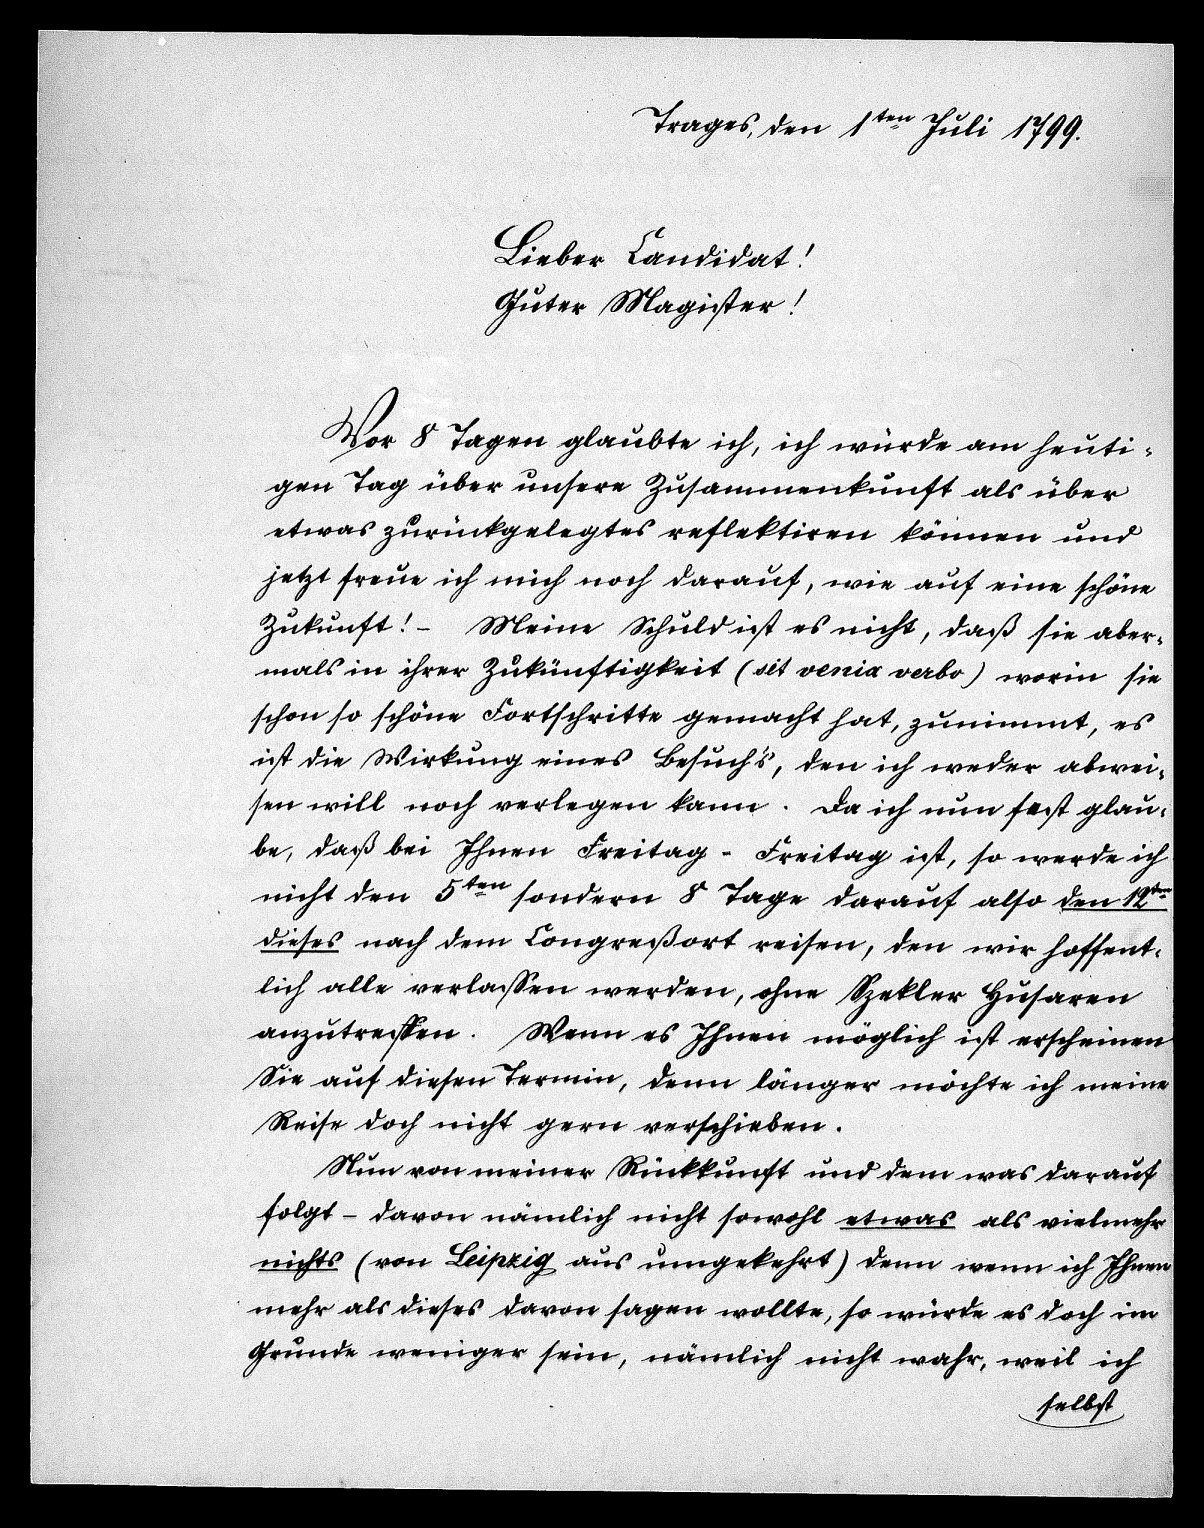 Trages, den 1ten Juli 1799.
Lieber Candidat!
Guter Magister!
Vor 8 Tagen glaubte ich, ich würde am heuti-
gen Tag über unsere Zusammenkunft als über
etwas zurückgelegtes reflektiren können und
jetzt freue ich mich noch darauf, wie auf eine schöne
Zukunft! – Meine Schuld ist es nicht, daß sie aber-
mals in ihrer Zukünftigkeit (sit venia verbo) worin sie
schon so schöne Fortschritte gemacht hat, zunimmt, es
ist die Wirkung eines Besuch's, den ich weder abwei-
sen will noch verlegen kann. Da ich nun fest glau-
be, daß bei Ihnen Freitag - Freitag ist, so werde ich
nicht den 5ten sondern 8 Tage darauf also den 12ten
dieses nach dem Congreßort reisen, den wir hoffent-
lich alle verlassen werden, ohne Szekler Husaren
anzutreffen. Wenn es Ihnen möglich ist erscheinen
Sie auf diesen Termin, denn länger möchte ich meine
Reise doch nicht gern verschieben.
Nun von meiner Rückkunft und dem was darauf
folgt – davon nämlich nicht sowohl etwas als vielmehr
nichts (von Leipzig aus umgekehrt) denn wenn ich Ihnen
mehr als dieses davon sagen wollte, so würde es doch im
Grunde weniger sein, nämlich nicht wahr, weil ich
selbst